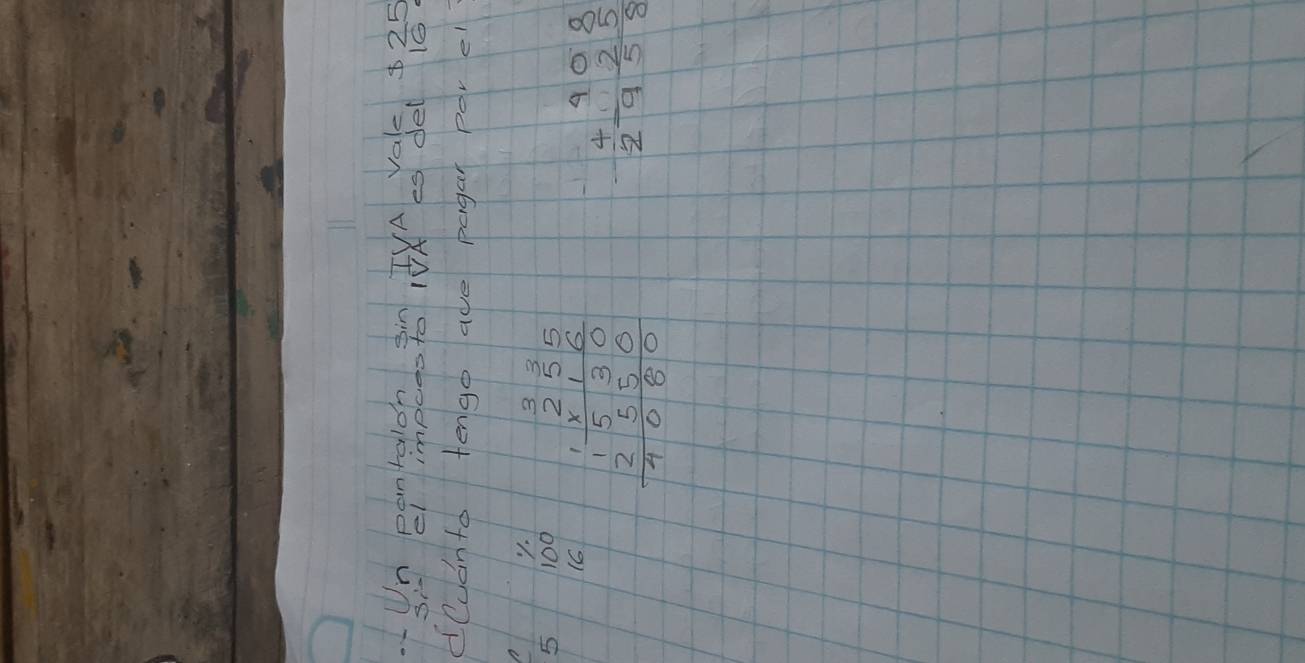 .- Un pantalón sin IVA vale $ 25
si el impuesto IVA es del 16
¿Cuánto tengo que pagar por el
%
5 100
16
3 3
2 5 5
x 1 6
1 5 3 0
2 5 5 0
4 0 8 0
4 0 8
+ 2 5
2 9 5 8